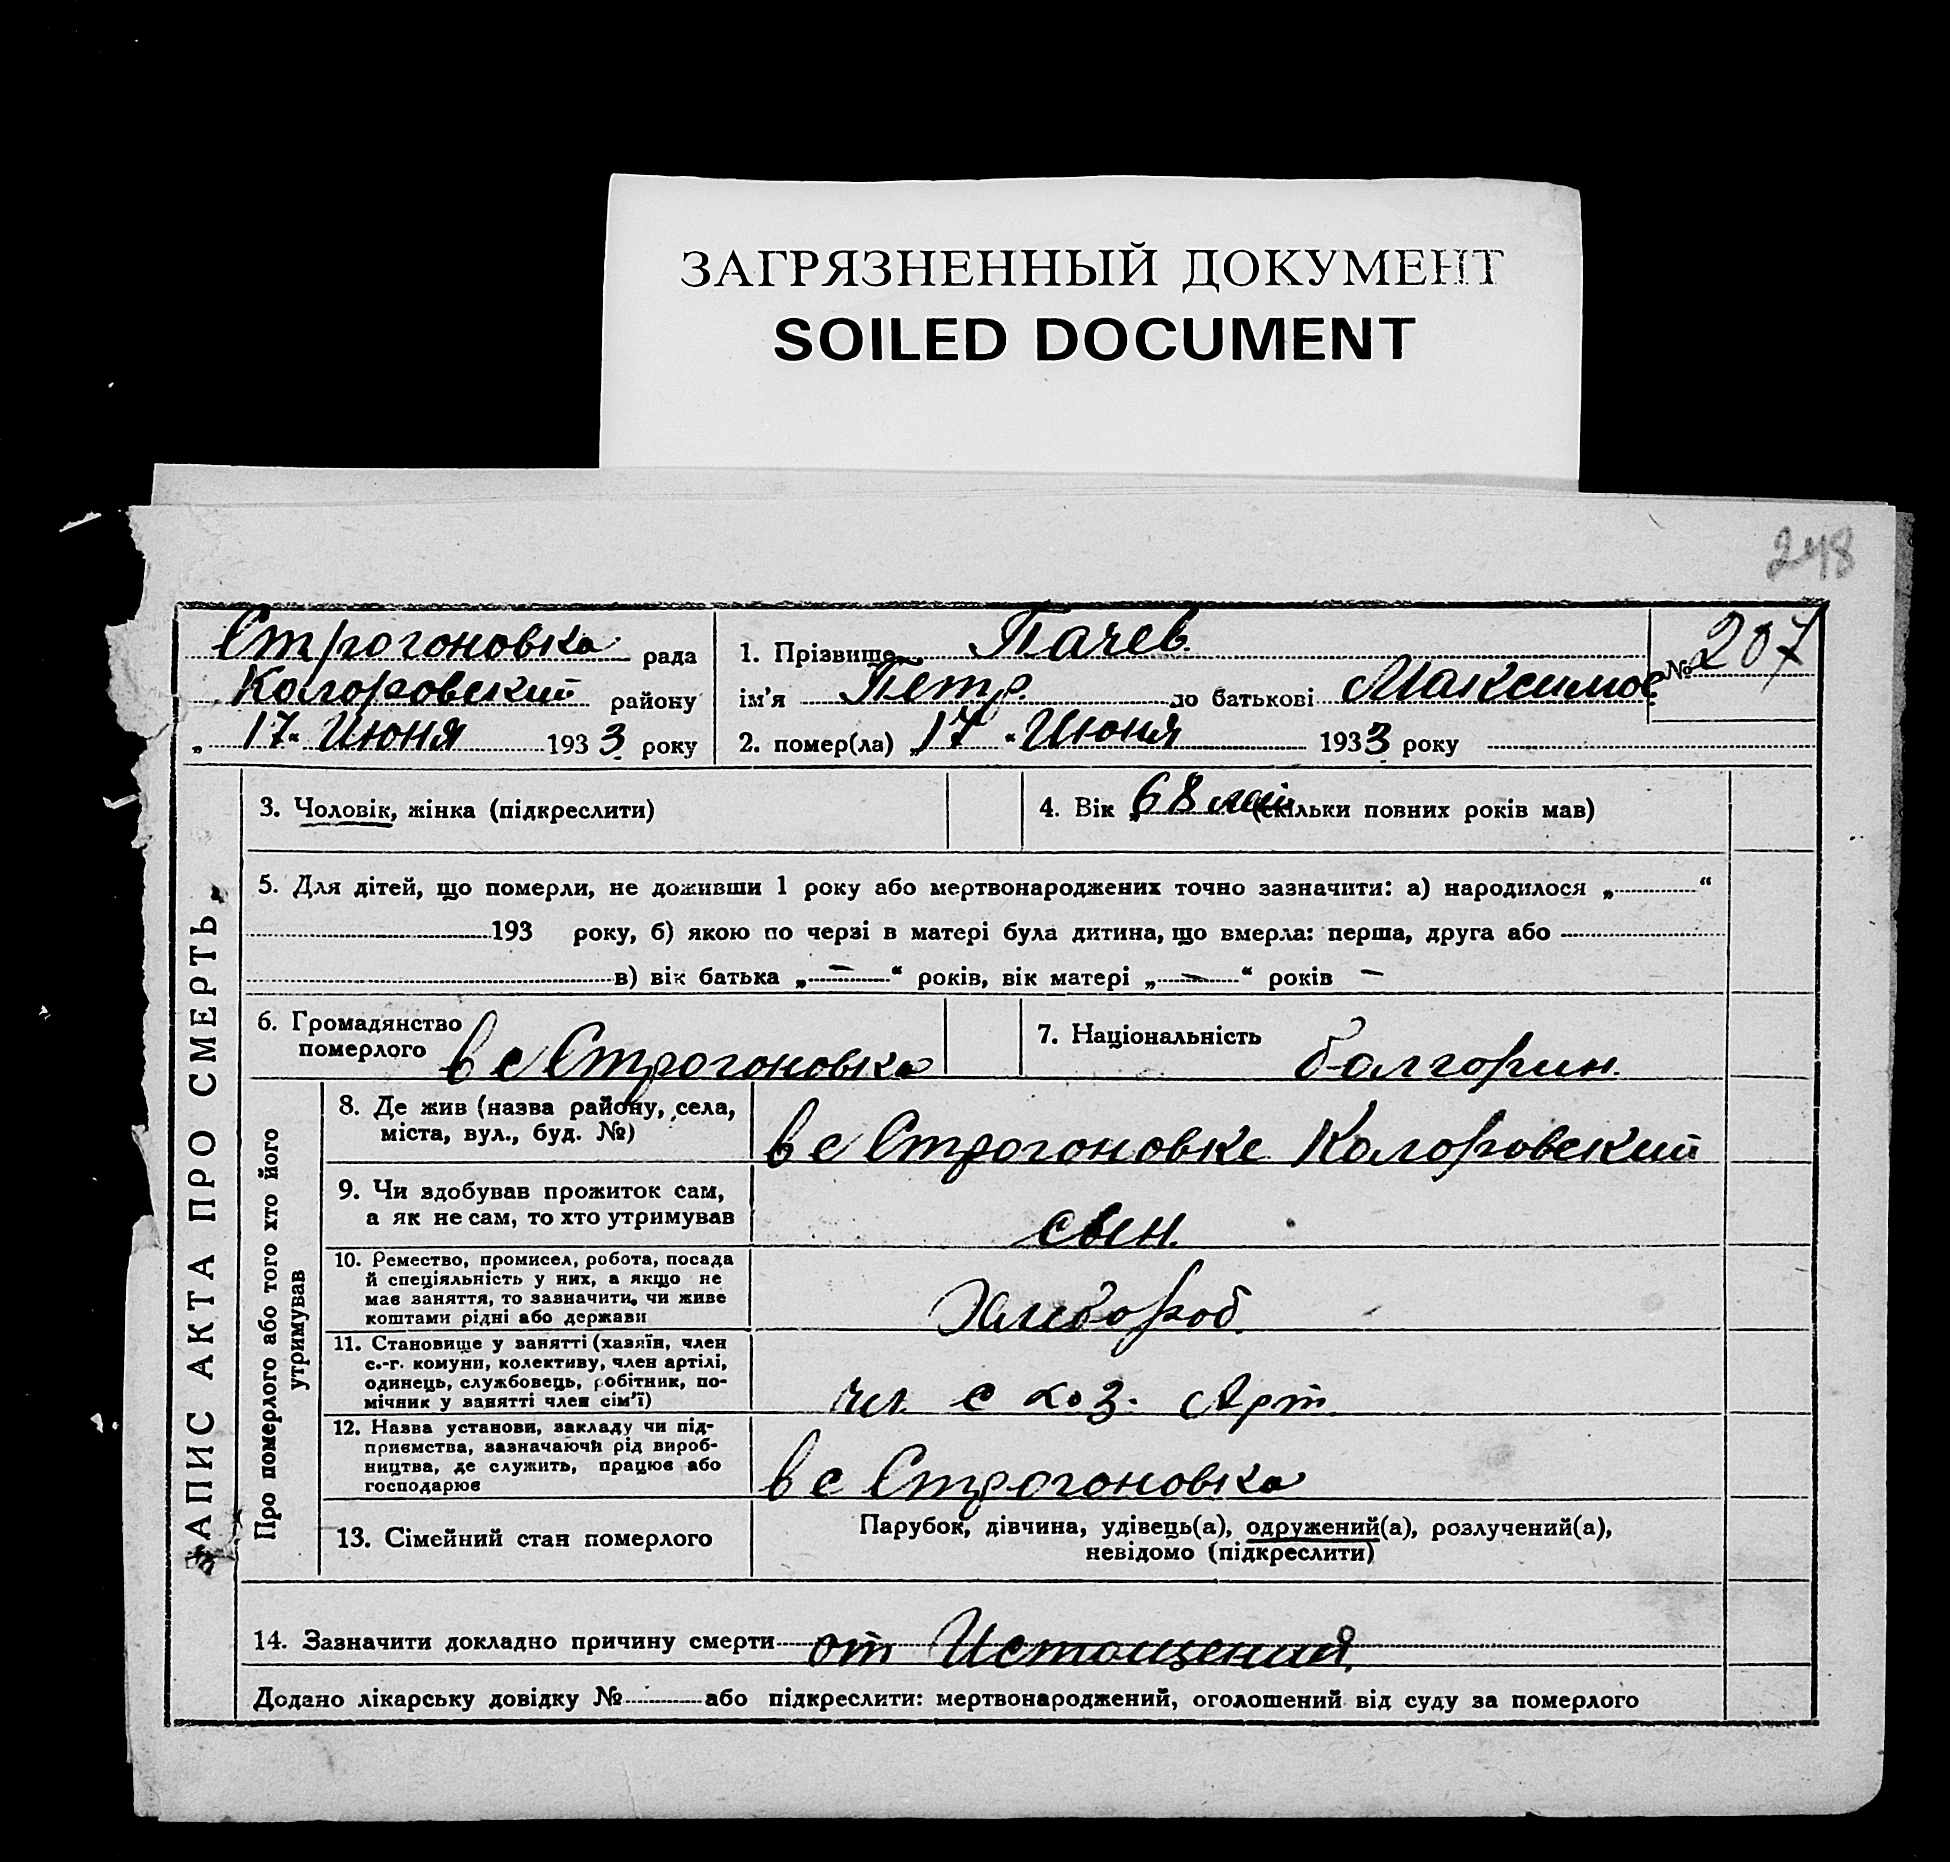 ЗАГРЯЗНЕННЫЙ ДОКУМЕНТ
SOILED DOCUMENT
248
Строгоновка рада
Коларовский району
„ 17 “ Июня 1933 року
1. Прізвище Пачев
№ 207
ім'я Петр по батькові Максимов
2. помер(ла) „ 17 “ Июня 1933 року
ЗАПИС АКТА ПРО СМЕРТЬ
3. Чоловік, жінка (підкреслити)
4. Вік „ 68 лет (скільки повних років мав)
5. Для дітей, що померли, не доживши 1 року або мертвонароджених точно зазначити: а) народилося „ “
193 року, б) якою по черзі в матері була дитина, що вмерла: перша, друга або
в) вік батька „ — “ років, вік матері „ — “ років —
6. Громадянство
померлого в с Строгоновка
7. Національність болгорин.
Про померлого або того хто його
утримував
8. Де жив (назва району, села,
міста, вул., буд. №)
в с Строгоновке Коларовский
9. Чи здобував прожиток сам,
а як не сам, то хто утримував
сын.
10. Ремество, промисел, робота, посада
й спеціяльність у них, а якщо не
має заняття, то зазначити, чи живе
коштами рідні або держави
Хлебороб
11. Становище у занятті (хазяїн, член
с.-г. комуни, колективу, член артілі,
одинець, службовець, робітник, по-
мічник у занятті член сім'ї)
чл. с хоз. Арт
12. Назва установи, закладу чи під-
приємства, зазначаючи рід вироб-
ництва, де служить, працює або
господарює
в с Строгоновка
13. Сімейний стан померлого
Парубок, дівчина, удівець(а), одружений(а), розлучений(а),
невідомо (підкреслити)
14. Зазначити докладно причину смерти от Истощения
Додано лікарську довідку № або підкреслити: мертвонароджений, оголошений від суду за померлого